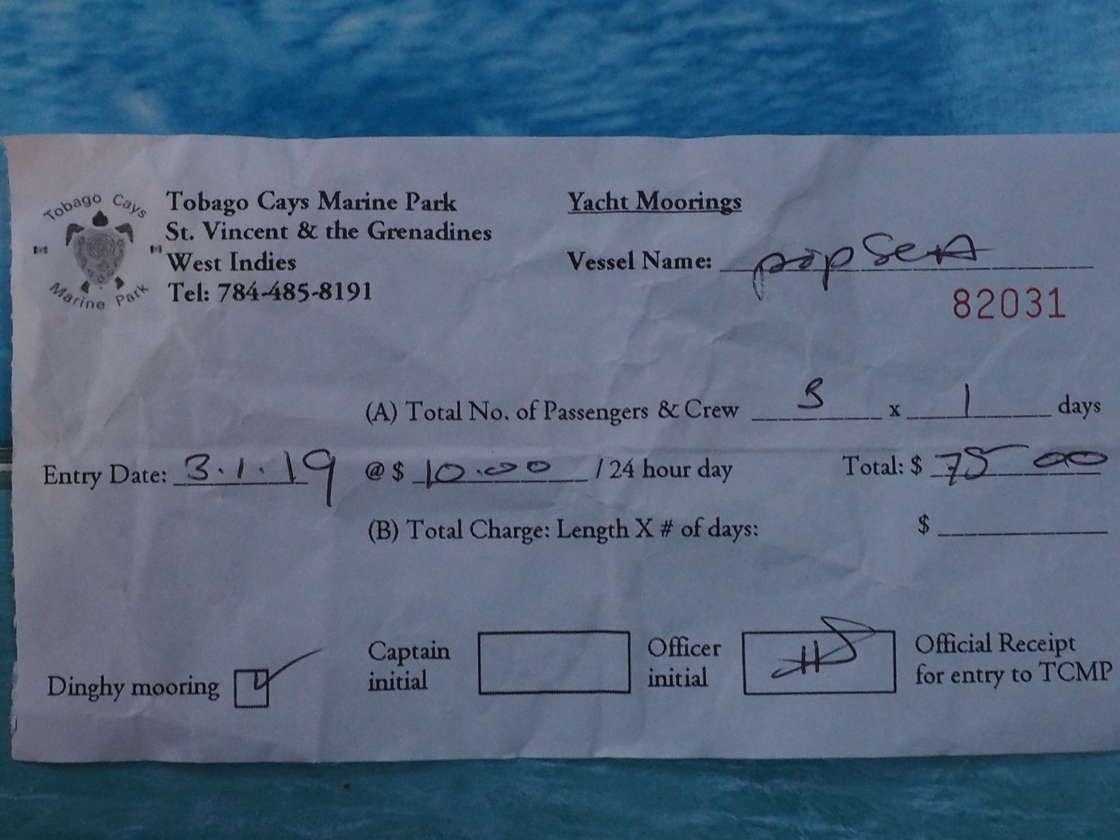 Tobago Cays
Marine Park
Tobago Cays Marine Park
St. Vincent & the Grenadines
West Indies
Tel: 784-485-8191
Yacht Moorings
Vessel Name: popseA
82031
(A) Total No. of Passengers & Crew 3 x 1 days
Entry Date: 3.1.19 @ $ 10.00 / 24 hour day Total: $ 75 00
(B) Total Charge: Length X # of days: $
Dinghy mooring
Captain
initial
Officer
initial
Official Receipt
for entry to TCMP